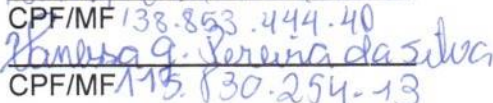 CPF/MF 138.853.444.40
Vanessa g. Pereira da Silva
CPF/MF 115.830.254-13